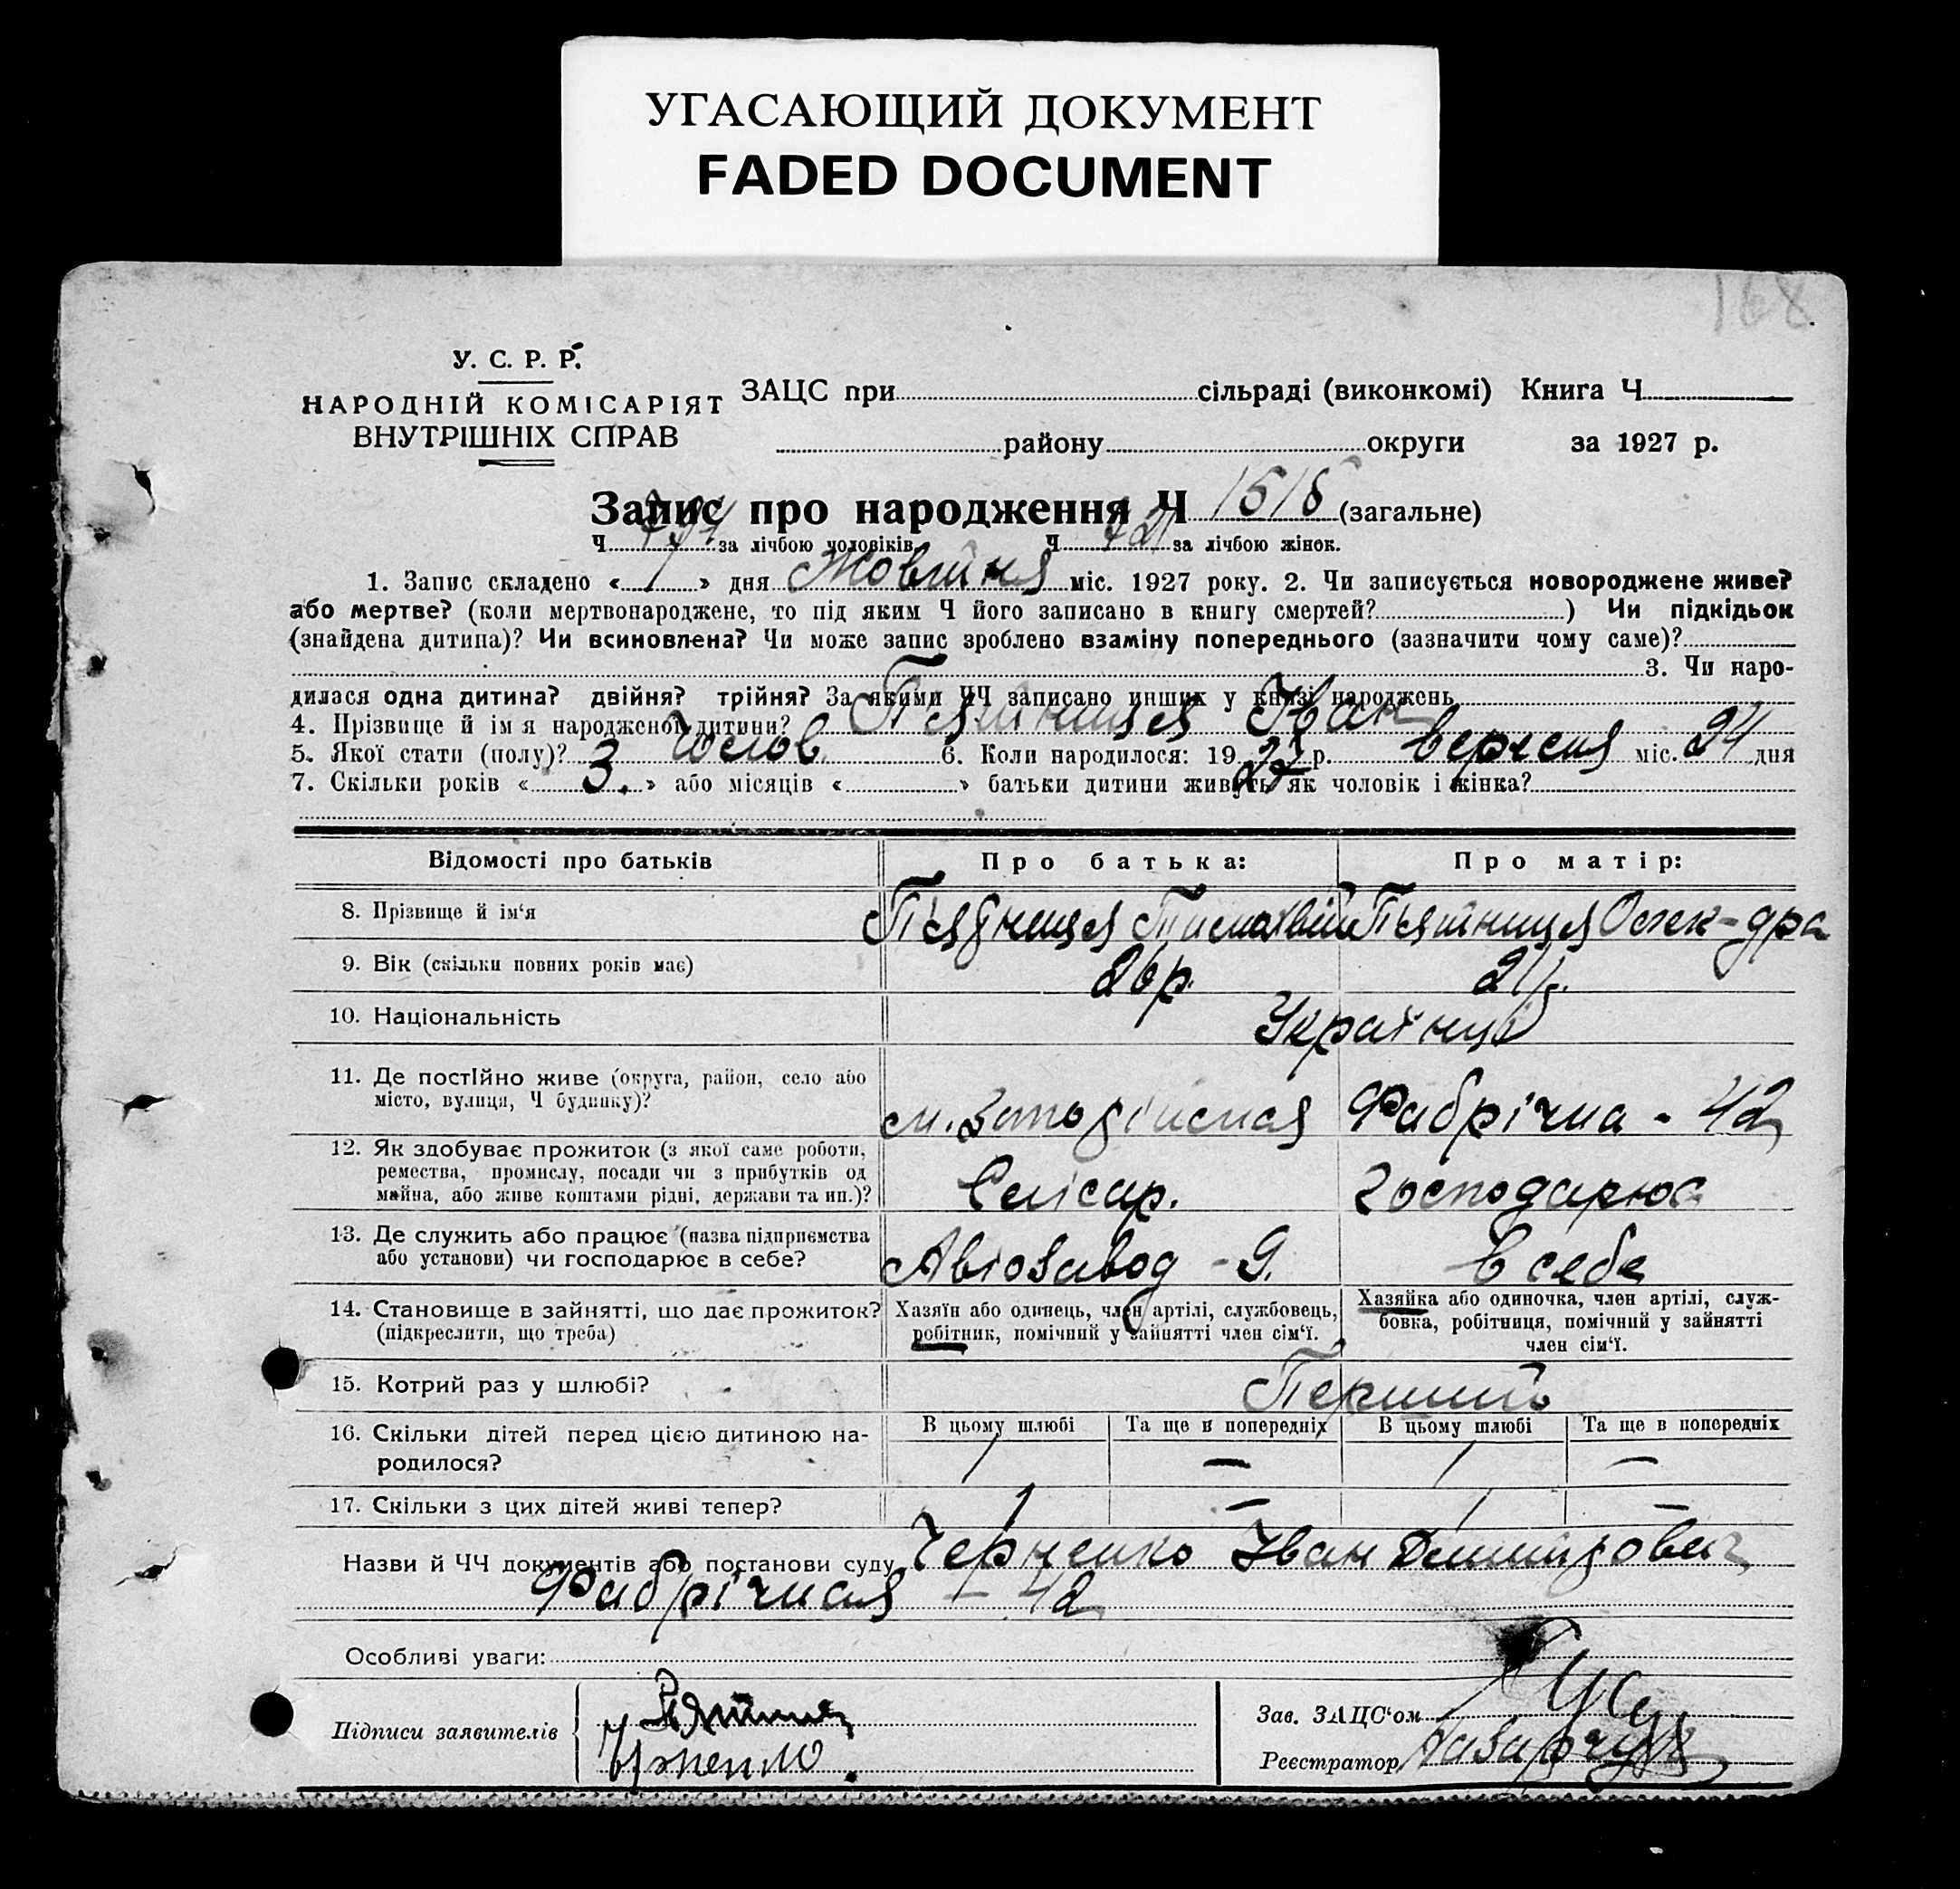 УГАСАЮЩИЙ ДОКУМЕНТ
FADED DOCUMENT
168
У. С. Р. Р.
НАРОДНІЙ КОМІСАРІЯТ
ВНУТРІШНІХ СПРАВ
ЗАЦС при сільраді (виконкомі) Книга Ч
району округи за 1927 р.
Запис про народження Ч 1518 (загальне)
Ч за лічбою чоловіків Ч 721 за лічбою жінок.
1. Запис складено « 1 » дня Жовтня міс. 1927 року. 2. Чи записується новороджене живе?
або мертве? (коли мертвонароджене, то під яким Ч його записано в книгу смертей? ) Чи підкідьок
(знайдена дитина)? Чи всиновлена? Чи може запис зроблено взаміну попереднього (зазначити чому саме)?
3. Чи наро-
дилася одна дитина? двійня? трійня? За якими ЧЧ записано инших у книзі народжень
4. Прізвище й ім я народженої дитини? Пьятниця Іван
5. Якої стати (полу)? Чолов. 6. Коли народилося: 1927 р. Вересня міс. 24 дня
7. Скільки років « 3. » або місяців « » батьки дитини живуть як чоловік і жінка?
Відомості про батьків Про батька: Про матір:
8. Прізвище й ім‘я Пьятниця Тимофій Пьятниця Олек-дра
9. Вік (скільки повних років має) 26 р. 21 р.
10. Національність Українці
11. Де постійно живе (округа, район, село або
місто, вулиця, Ч будинку)? Фабрічна - 42
12. Як здобуває прожиток (з якої саме роботи,
ремества, промислу, посади чи з прибутків од
майна, або живе коштами рідні, держави та ин.)? Слісар. Господарює
13. Де служить або працює (назва підприємства
або установи) чи господарює в себе? Автозавод - 9. В себе
14. Становище в зайнятті, що дає прожиток?
(підкреслити, що треба)
Хазяїн або одинець, член артілі, службовець,
робітник, помічний у зайнятті член сім‘ї.
Хазяйка або одиночка, член артілі, служ-
бовка, робітниця, помічний у зайнятті
член сім‘ї.
15. Котрий раз у шлюбі? Перший
В цьому шлюбі Та ще в попередніх В цьому шлюбі Та ще в попередніх
16. Скільки дітей перед цією дитиною на-
родилося? 1 — 1 —
17. Скільки з цих дітей живі тепер? 1 — 1 —
Назви й ЧЧ документів або постанови суду Черненко Іван Димитрович
Фабрічная - 42
Особливі уваги:
Підписи заявителів
Зав. ЗАЦС‘ом
Реєстратор